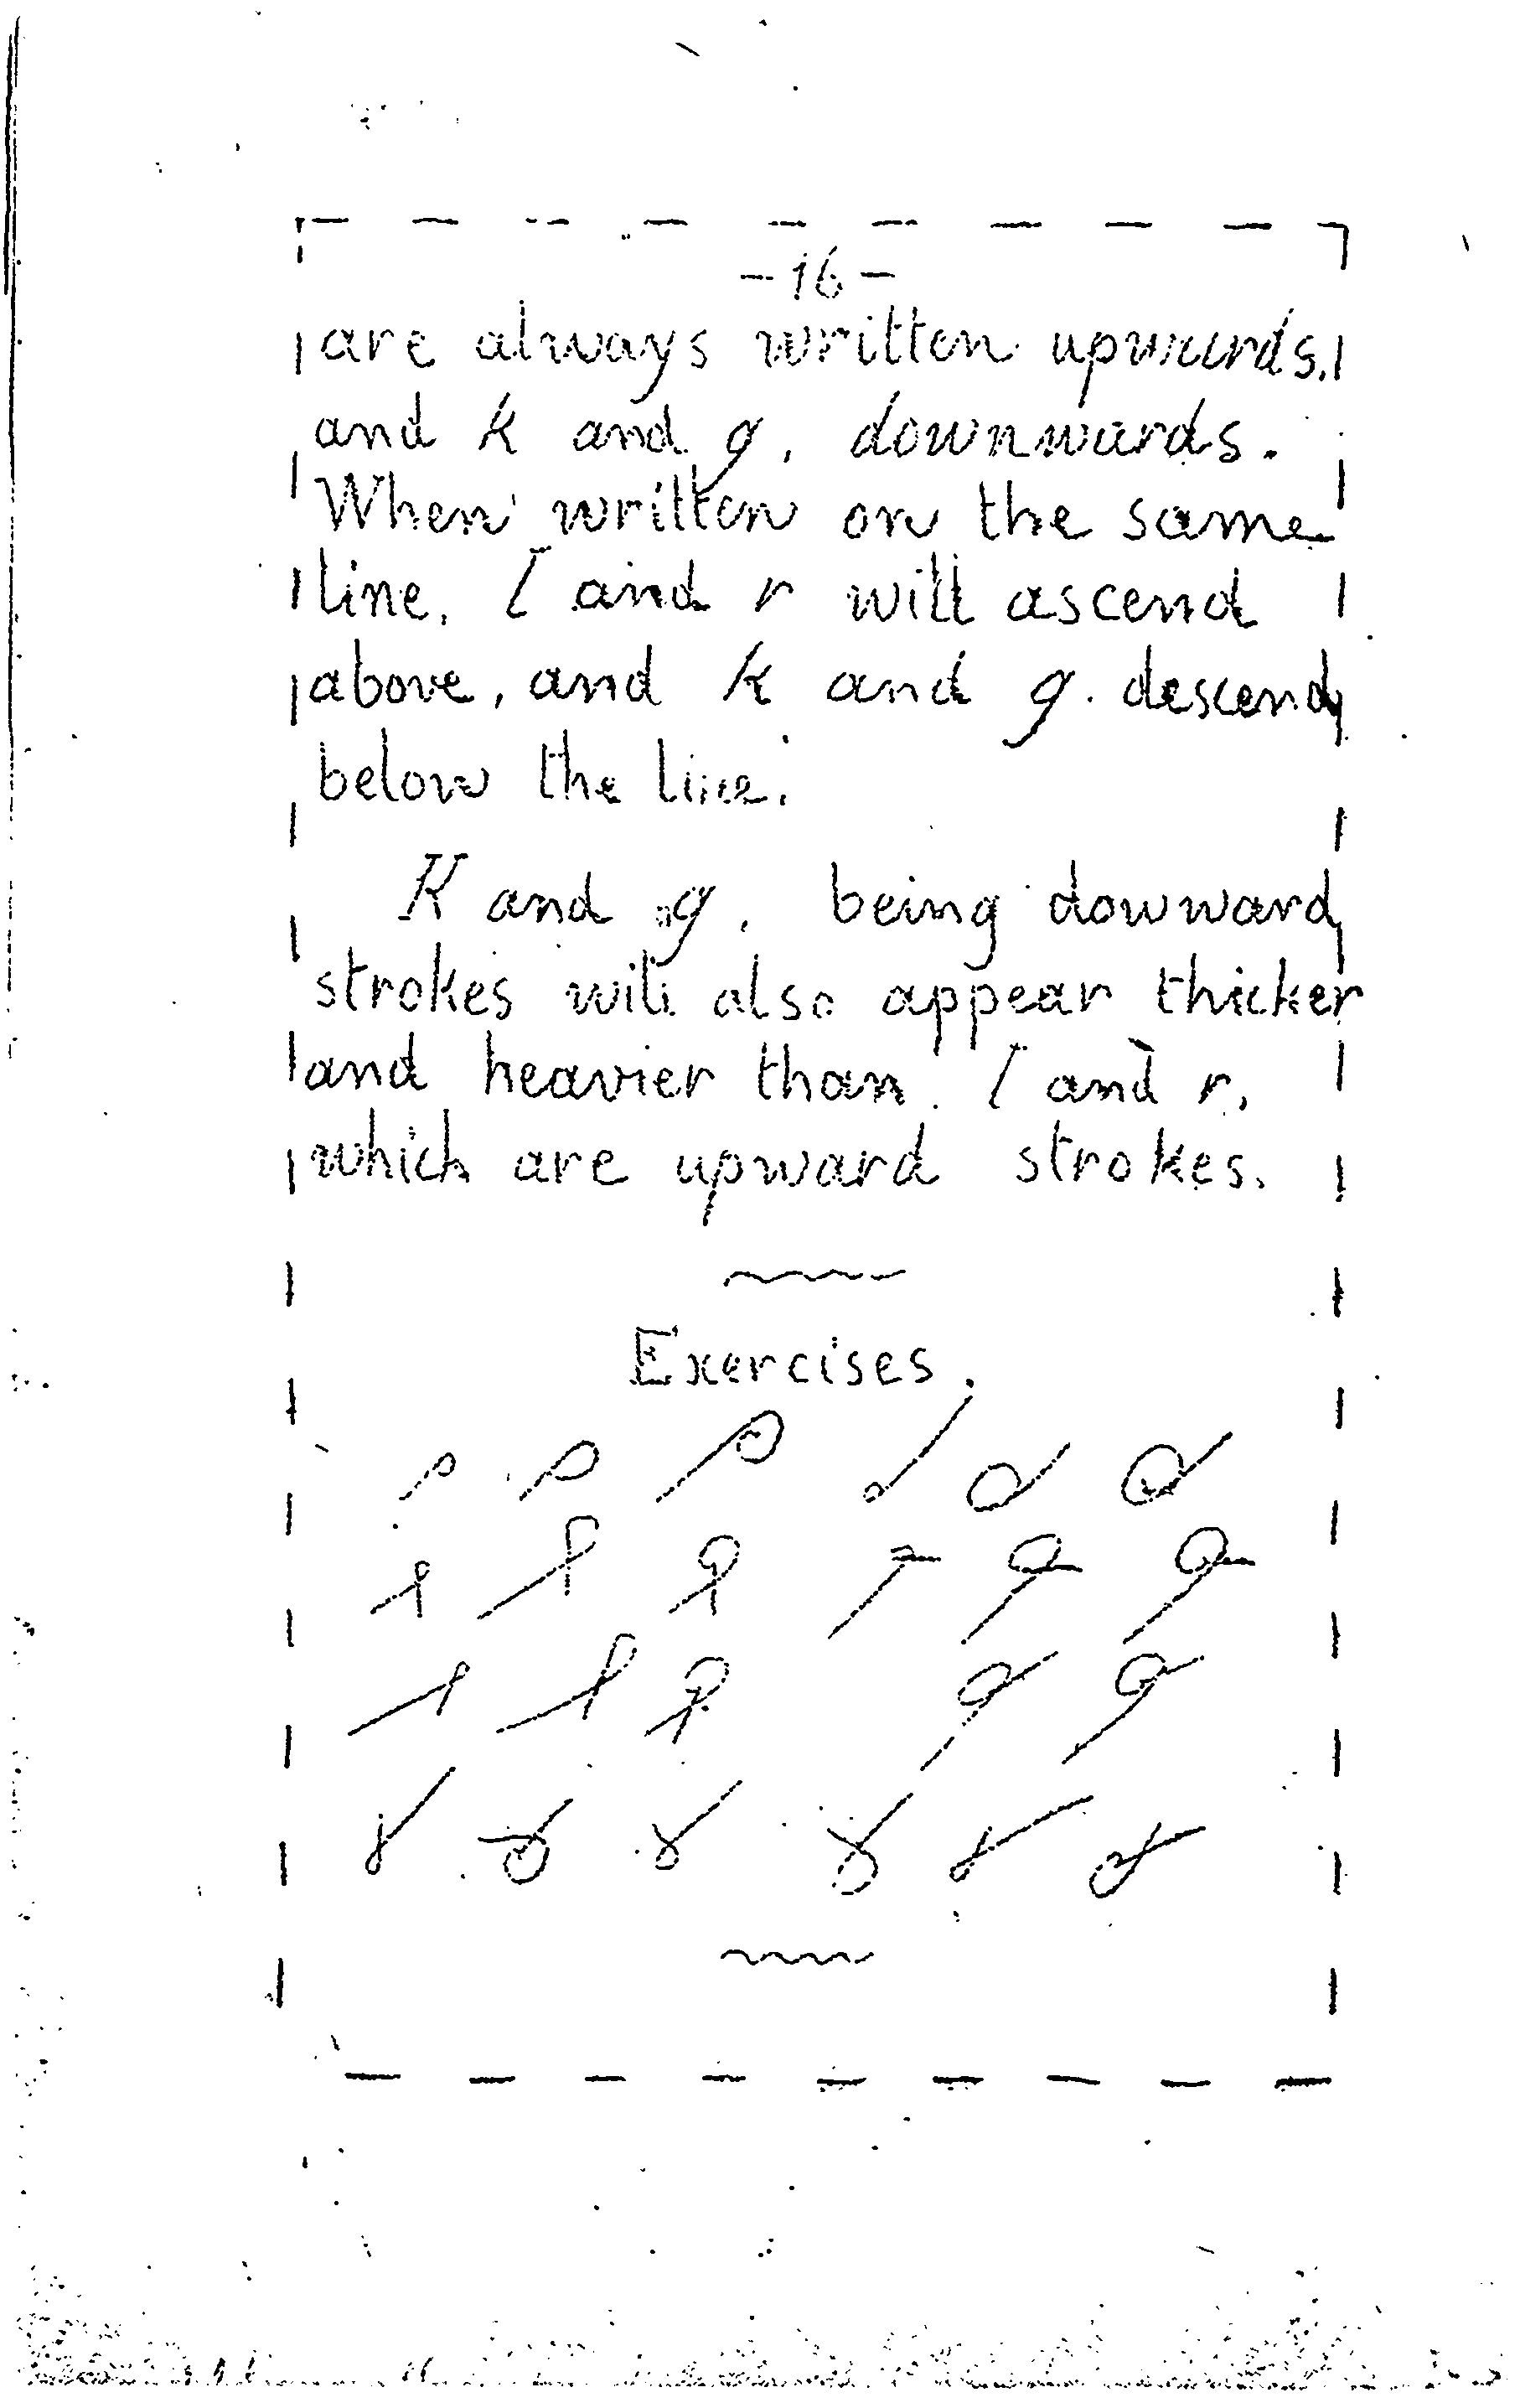 -16-
are always written upwards,
and k and g, downwards.
When written on the same
line, l and r will ascend
above, and k and g descend
below the line.
K and g, being dowward
strokes will also appear thicker
and heavier than l and r,
which are upward strokes.
Exercises.